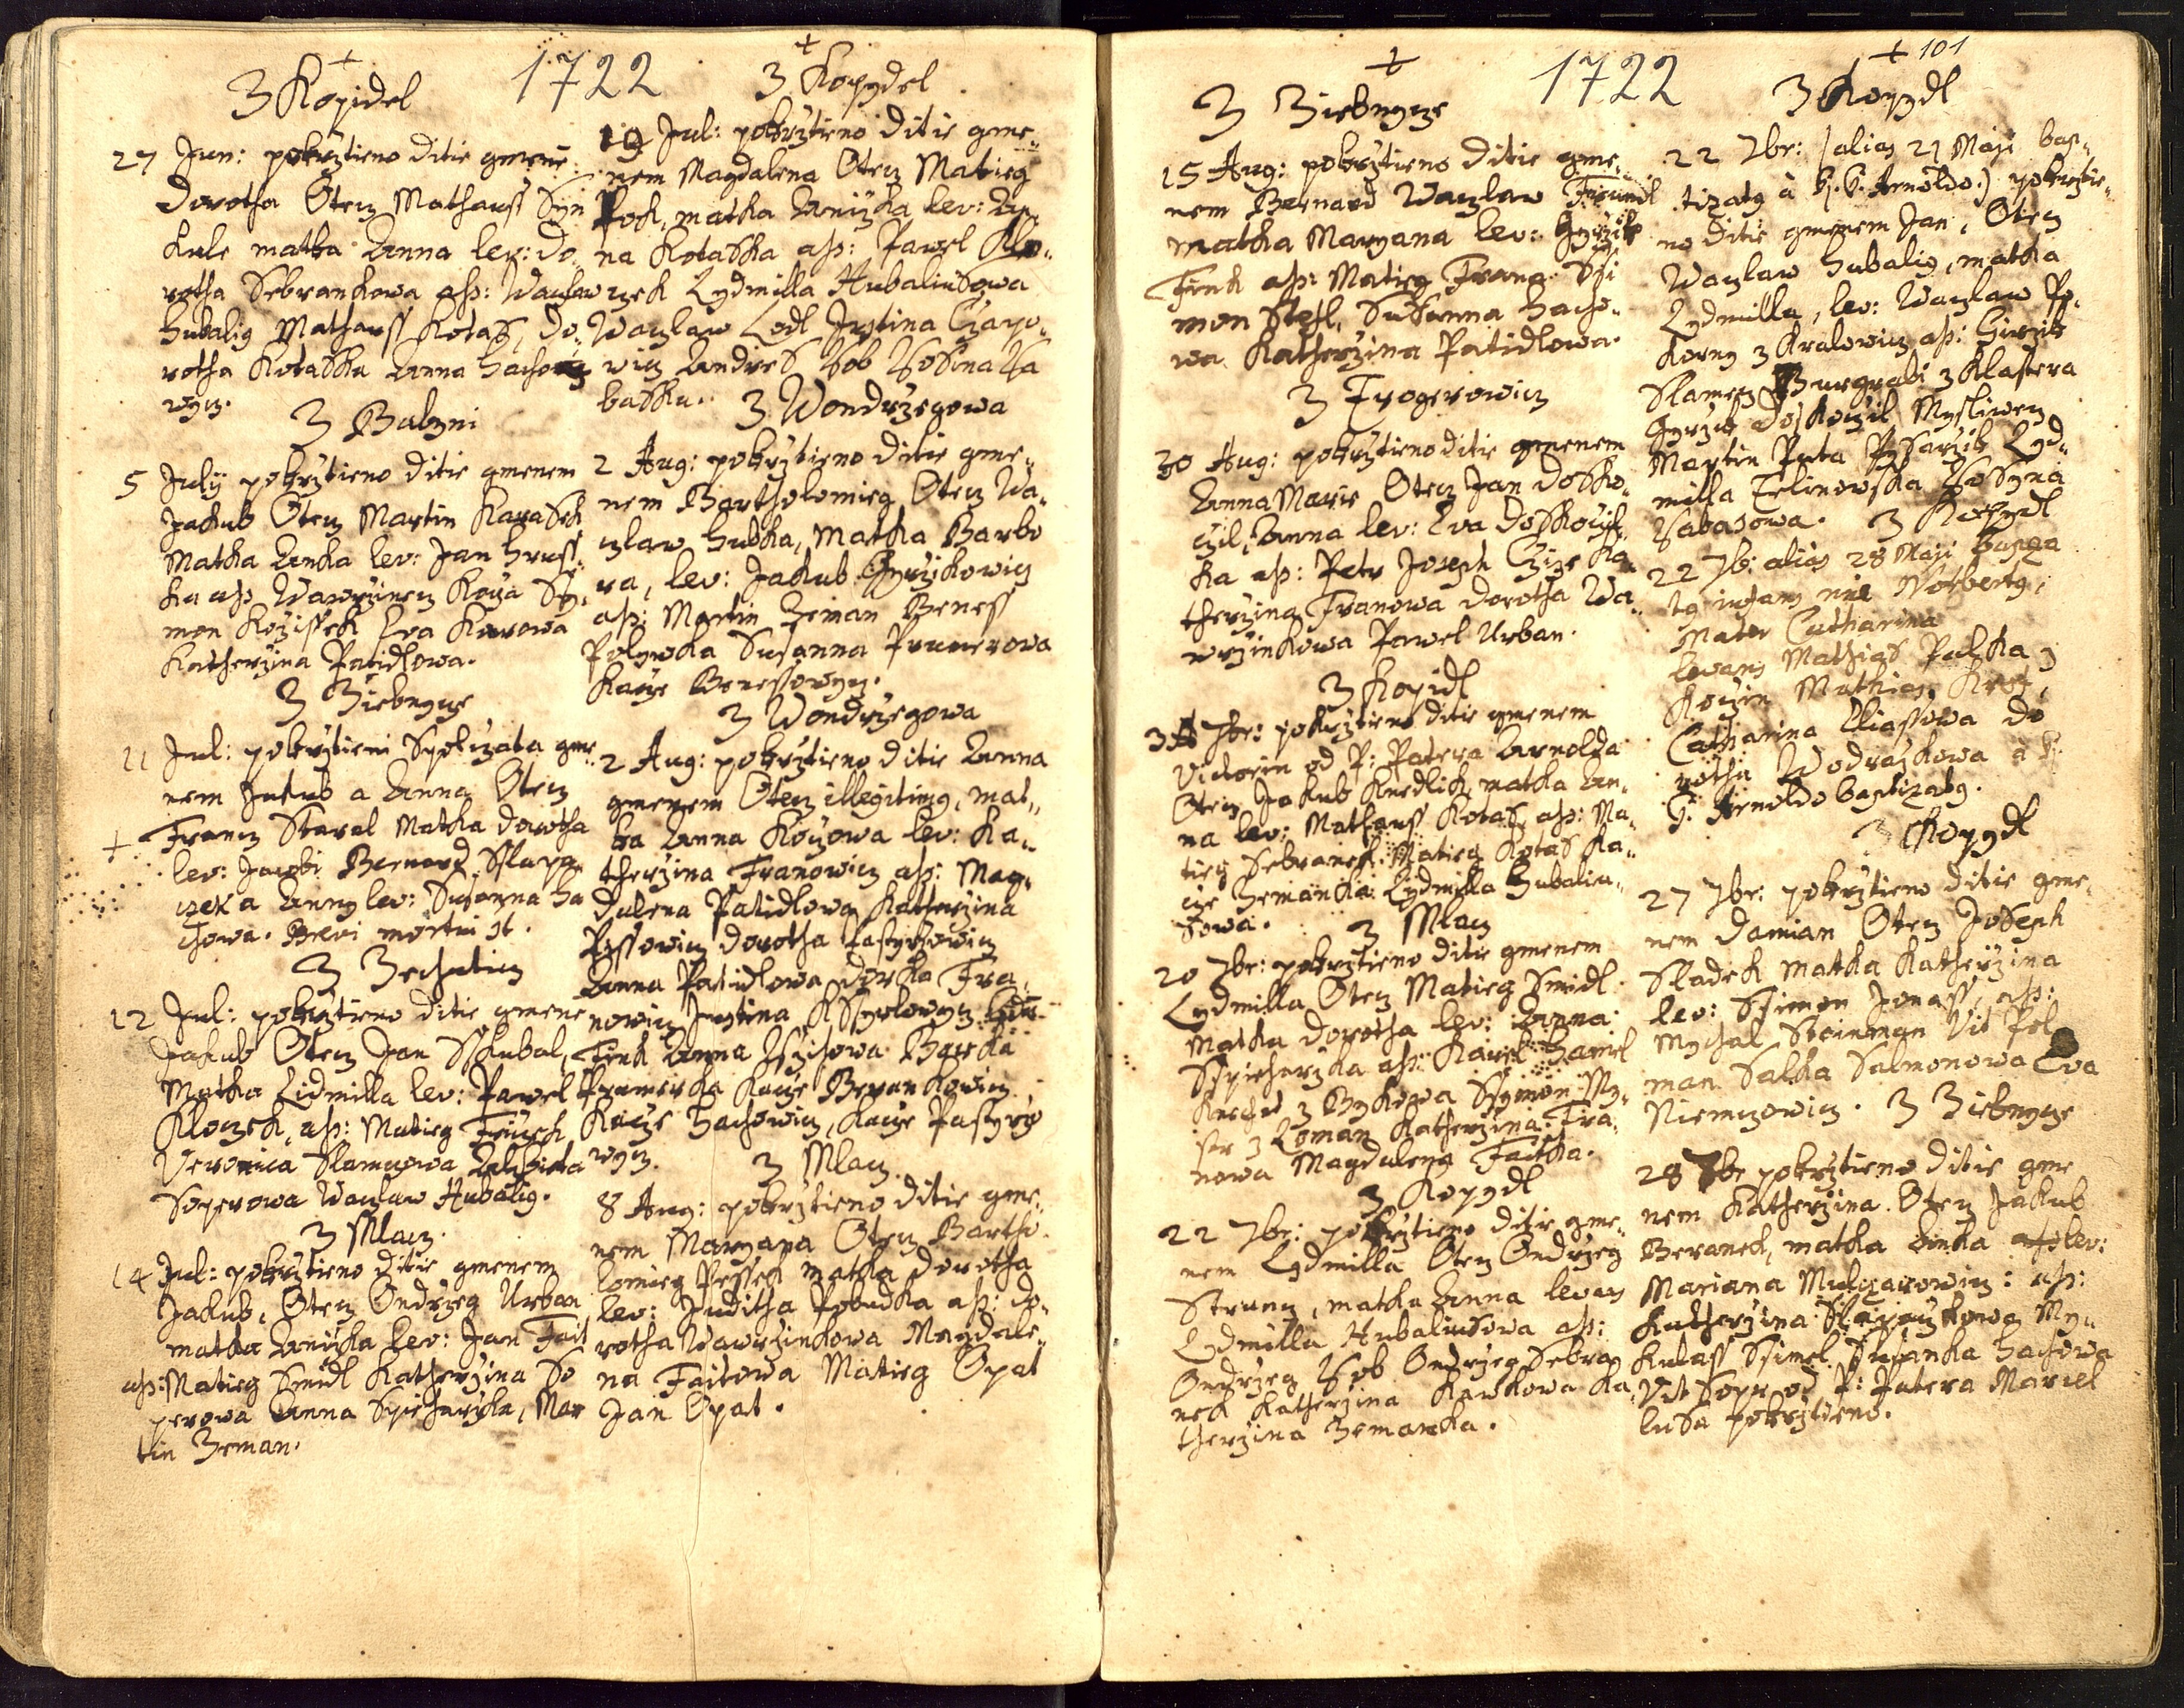 1722
3 Kopidel
27 Jun: pokrztieno ditie gmene
Dorotha Otecz Mathauss
kule matka Anna lev: Do
rotha Sebrankowa ass: Waczlaw
Hubalig Mathauss Kotas, Do
rotha Kotaska Anna
wycz.
3 Bukyni
5 July pokrztieno ditie gmenem
Jakub Otecz Martin Karasek
Matka Anka lev: Jan Hruss
ka ass Wawrzinecz Koza Sy
mon Kozissek Eva
Katherzina Patidlowa.
3 Ziebnycze
11 Jul: pokrztieni gme
nem Jakub a Anna Otecz
Francz Staral Matka Dorotha
lev: Jacobi Bernard Slapa
czek a Anny lev: Susanna Ha
chowa. Brevi mortui st.
3 Zechaticz
12 Jul: pokrztieno ditie gmene
Jakub Otecz Jan Sskubal,
Matka Lidmilla lev: Pawel
Kloczek, ass: Matieg
Veronica Slamowa Alzbieta
Soperowa Waczlaw Hubalig.
3 Mlacz.
14 Jul: pokrztieno ditie gmenem
Jakub, Otecz Ondrzeg Urban
matka Aniczka lev: Jan Fait
ass: Matieg Smidl Katherzina So
perowa Anna Spicharzka, Mar
tin Zeman.
3 Kopydel
19 Jul: pokrztieno ditie gme
nem Magdalena Otecz Matieg
Pock, matka Aniczka lev: An
na Kotaska ass: Pawel Klo
czek Lydmilla Hubaliusowa
Waczlaw Lodl Justina Czapo
wicz Andres Kob Rosina Ka
baska.
3 Wondrzegowa
2 Aug: pokrztieno ditie gme
nem Bartholomieg Otecz Wa
czlaw Hubka, Matka Barbo
ra, lev: Jakub Gyrzikowicz
ass: Martin Zeman Beness
Polywka Susanna Prunerowa
Kacze Benessowycz.
3 Wondrzegowa
2 Aug: pokrztieno ditie Anna
gmenem Otecz illegitimg, mat
ka Anna Kozowa lev: Ka
therzina Franowicz ass: Mag
dalena Patidlowa Katherzina
Pessowicz Dorotha Pastyrzowicz
Anna Patidlowa Dorka Fra
nowicz Justina
Fink Anna Barka
Prunerka Kacze Berankowicz
Kacze Hachowicz, Kacze Pastyrzo
wycz.
3 Mlacz.
8 Aug: pokrztieno ditie gme
nem Maryana Otecz Bartho
lomieg Pessek matka Dorotha
lev: Juditha Pobudka ass: Do
rotha Wawrzinkowa Magdale
na Faitowa Matieg Opat
Jan Opat.
1722
101
3 Ziebnycze
15 Aug: pokrztieno ditie gme
nem Bernard Waczlaw
matka Maryana lev: Gyrzik
Fink ass: Matieg Frana Ssi
mon Stehl, Susanna Hacho
wa Katherzina Patidlowa.
3 Trogerowicz
30 Aug: pokrztieno ditie gmenem
Anna Marie Otecz Jan Dosko
czil, Anna lev: Eva Doskoczil
ka ass: Petr Joseph Czize Ka
therzina Franowa Dorotha Wa
wrzinkowa Pawel Urban.
3 Kopidl
3 7br: pokrztieno ditie gmenem
Victorin od P: Patera Arnolda
Otecz Jakub Knedlick matka An
na lev: Mathauss Kotas, ass: Ma
tieg Sebranek Matieg Kotas Ka
cze Zemanka Lydmilla Hubaliu
sowa.
3 Mlacz
20 7br: pokrztieno ditie gmenem
Lydmilla Otecz Matieg Smidl
Matka Dorotha lev: Anna
Sspicharzka ass: Karel Hamel
Knecht z Bykowa Ssymon My
ser z Loman Katherzina Fra
nowa Magdalena Faitka.
3 Kopydl
22 7br: pokrztieno ditie gme
nem Lydmilla Otecz Ondrzeg
Strunz, matka Anna levans
Lydmilla Hubaliusowa ass:
Ondrzeg Kob Ondrzeg Sebra
nek Katherzina Kawkowa Ka
therzina Zemanka.
3 Kopydl
22 7br: alias 21 Maji bap
tizatg à P. Arnoldo:) pokrztie
no ditie gmenem Jan, Otecz
Waczlaw Hubalig, matka
Lydmilla, lev: Waczlaw Po
korny z Kralowicz ass: Girzik
Slamecz Burgrabi z Klastera
Gyrzik Doskoczil Mysliwecz
Martin Puta Pysarzik Lyd
milla Zelinowska Rosyna
Kabasowa.
3 Kopydl
22 7b: alias 28 Maji bapta
tg infans nie Norbertg,
Mater Catharina
levans Mathias Pulka z
Kozin Mathias
Catharina Eliassowa Do
rotha Wodraskowa à
P. Arnoldo baptizatg.
3 Kopydl
27 7br: pokrztieno ditie gme
nem Damian Otecz Joseph
Sladek Matka Katherzina
lev: Ssimon Jonass, ass:
Mychal Steinman Vit Pol
man Salka Salmonowa Eva
Niemczowicz.
3 Ziebnycze
28 7br pokrztieno ditie gme
nem Katherzina Otecz Jakub
Beranek, matka Anka lev:
Mariana Mulczarowicz: ass:
Katherzina Slapaczkowa My
kulass Ssimel Susanka Hachowa
Vit Sopr od P: Patera Marcel
lusa pokrztieno.